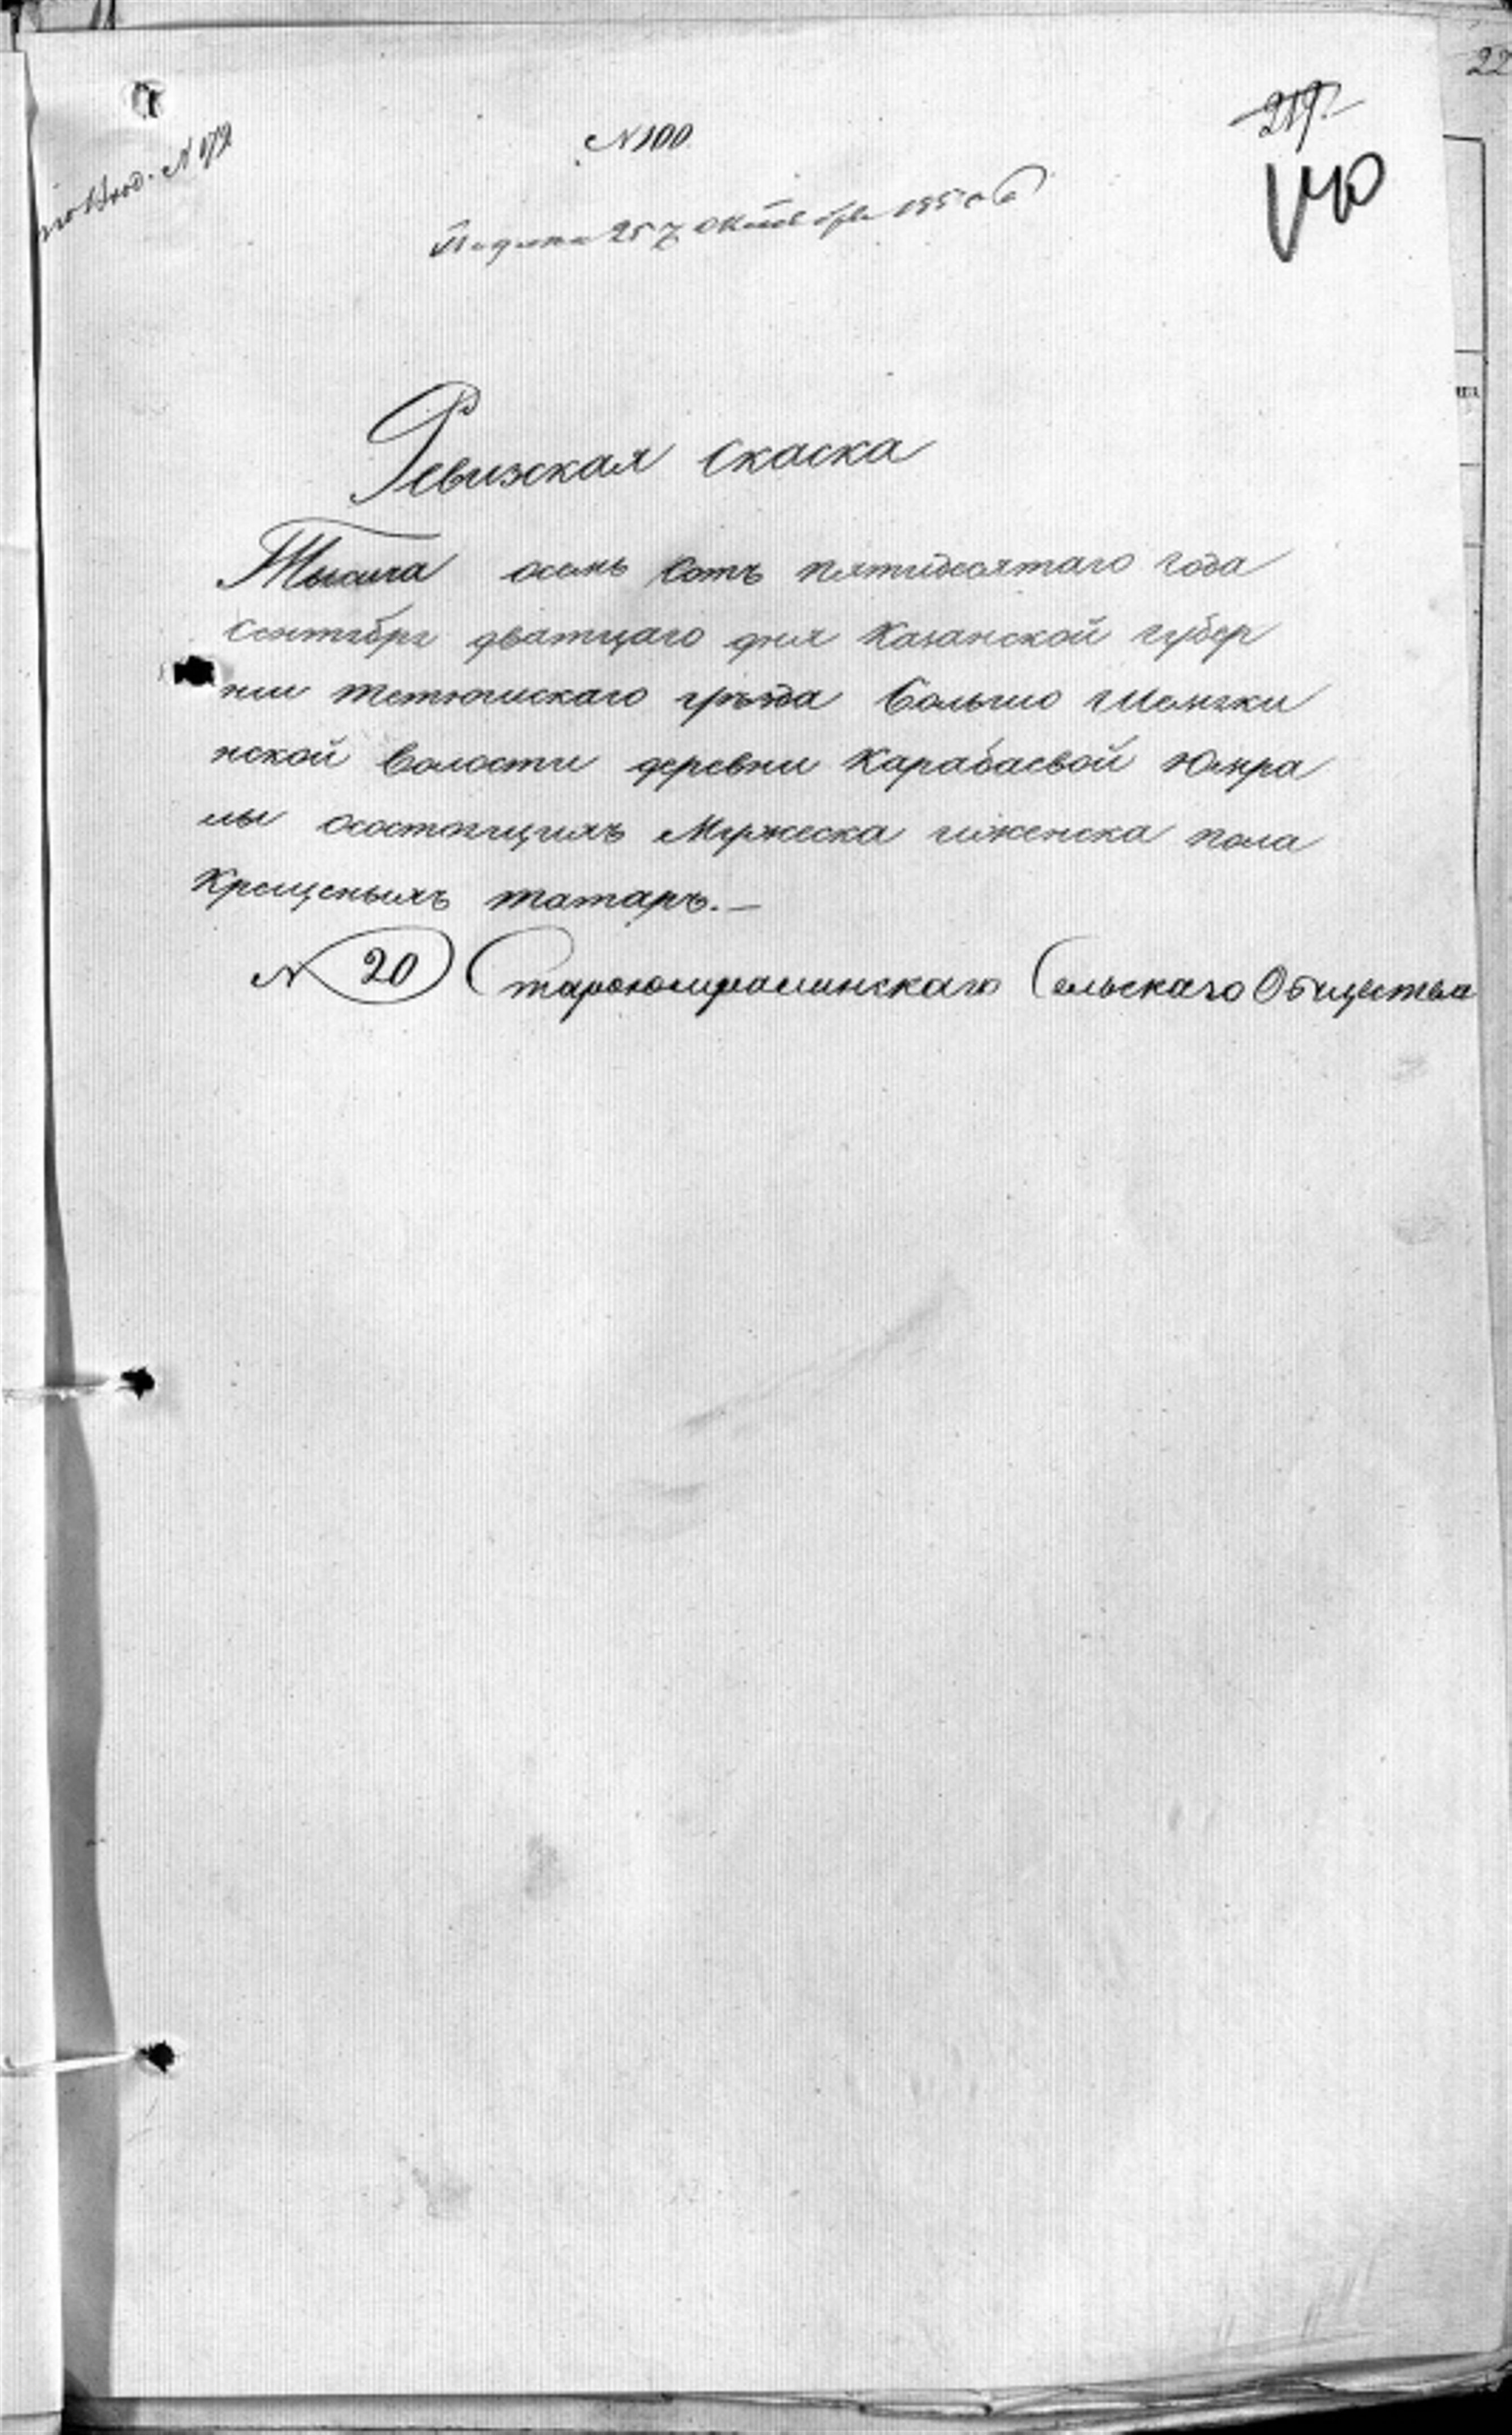 22
219.
140
по Вход. № 172
№ 100
Подана 25 Октября 1850 г
Ревизская Скаска
Тысяча осемь Сотъ пятидесятаго Года
Сентября дватцаго дня Казанской губер
нии тетюшскаго уѣзда Большо Шемяки
нской Волости деревни Карабаевой Юмра
лы осостоящихъ Мужеска иженска пола
Крещеныхъ татаръ.—
№ 20 Староюмралинскаго Сельскаго Общества